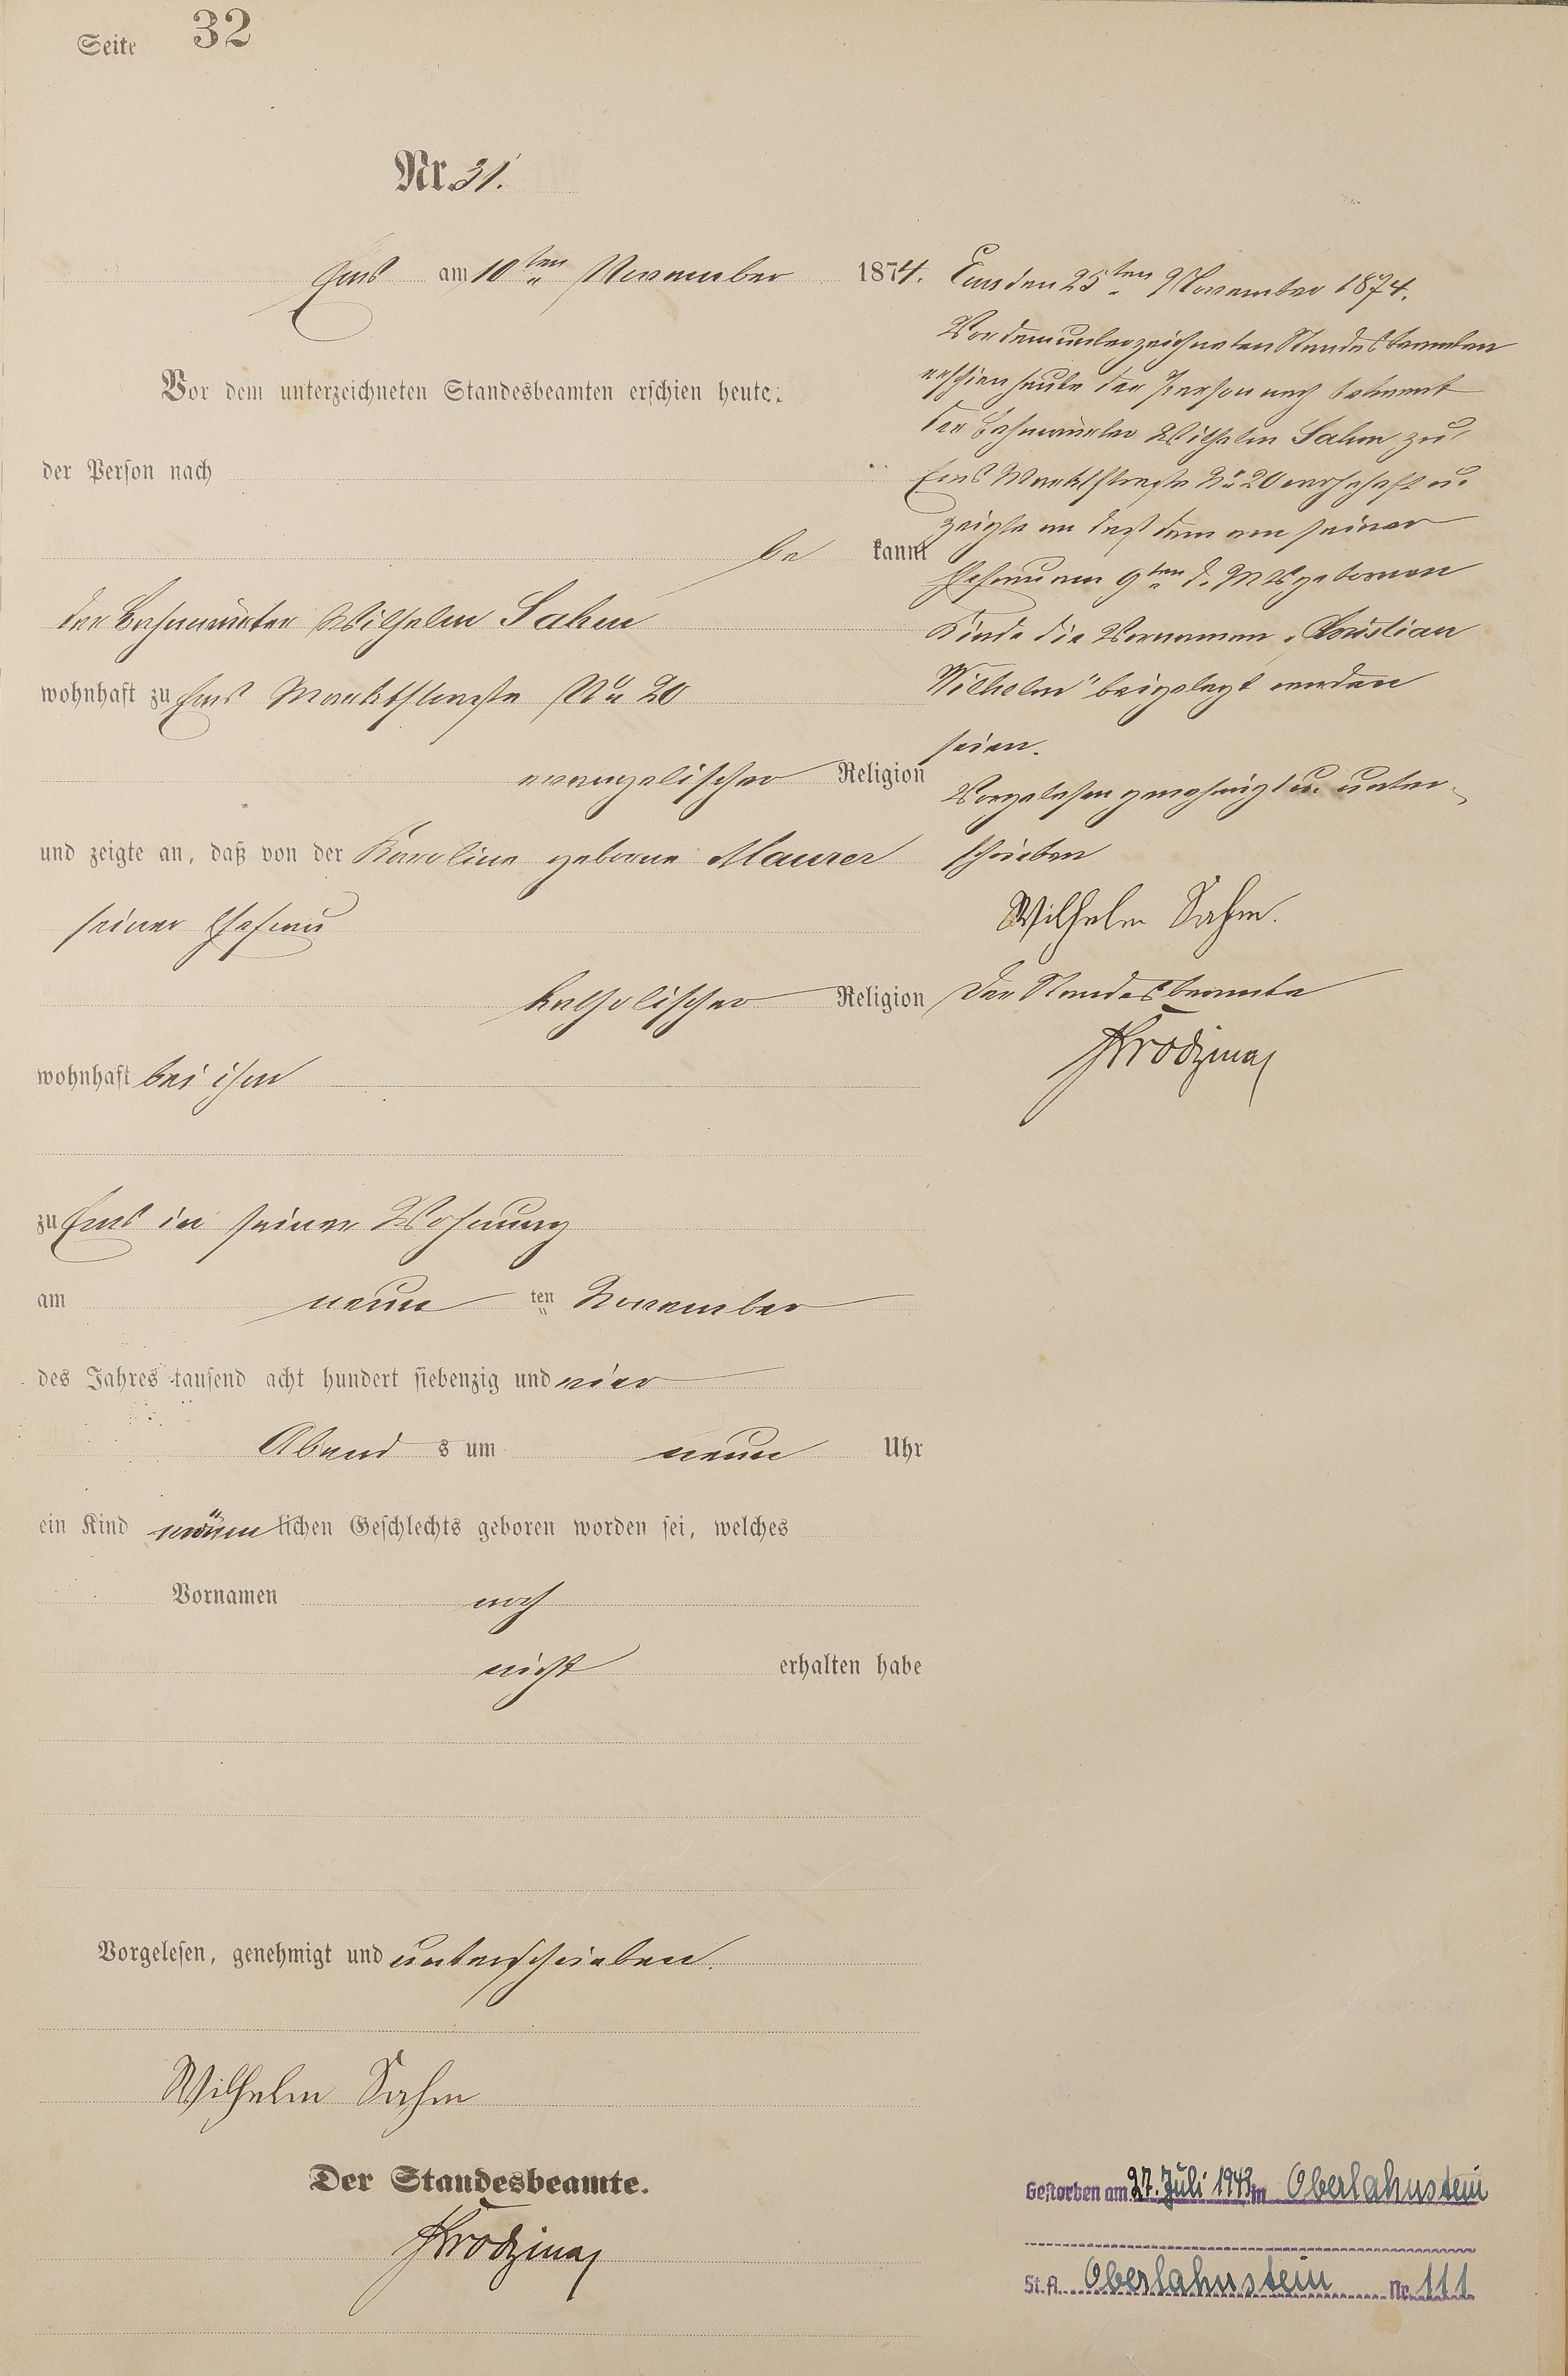 Seite 32
Nr. 31.
Ems am 10ten November 1874.
Vor dem unterzeichneten Standesbeamten erschien heute,
der Person nach
be kannt
der Bahnwärter Wilhelm Sahm
wohnhaft zu Ems Marktstraße No 20
evangelischer Religion
und zeigte an, daß von der Karoline geborne Maurer
seiner Ehefrau
katholischer Religion
wohnhaft bei ihm
zu Ems in seiner Wohnung
am neun ten November
des Jahres tausend acht hundert siebenzig und vier
Abend s um neun Uhr
ein Kind männ lichen Geschlechts geboren worden sei, welches
Vornamen noch
nicht erhalten habe
Vorgelesen, genehmigt und unterschrieben.
Wilhelm Sahm
Der Standesbeamte.
Ems den 25ten November 1874.
Vor dem unterzeichneten Standesbeamten
erschien heute der Person nach bekannt
der Bahnwärter Wilhelm Sahm zu
Ems Marktstraße No 20 wohnhaft u.
zeigte an daß dem von seiner
Ehefrau am 9ten d. Mts geborenen
Kinde die Vornamen „Christian
Wilhelm" beigelegt worden
seien.
Vorgelesen genehmigt u. unter-
schrieben
Wilhelm Sahm.
Der Standesbeamte
Gestorben am 27. Juli 1943 in Oberlahnstein
St.A. Oberlahnstein Nr. 111